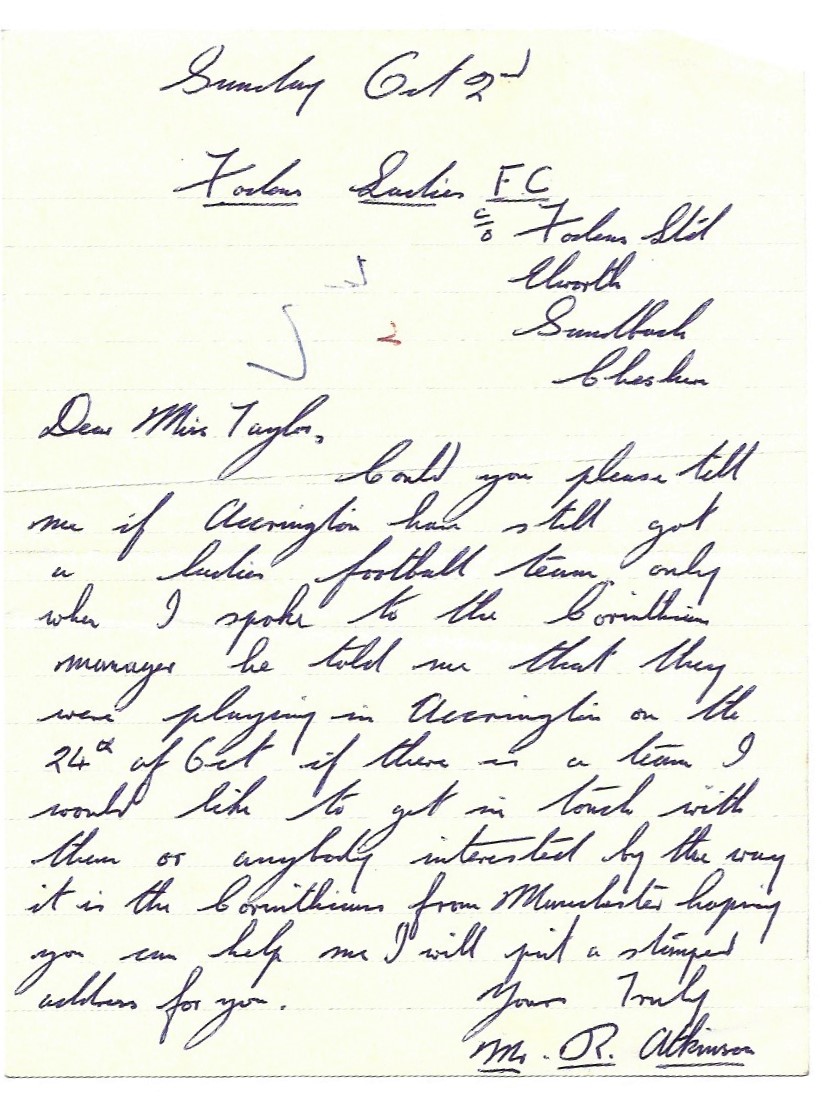 Sunday Oct 2nd
Fodens Ladies F.C
c/o Fodens Ltd
Elworth
Sandbach
Cheshire
2
Dear Miss Taylor,
Could you please tell
me if Accrington have still got
a ladies football team only
when I spoke to the Corinthian
manager he told me that they
were playing in Accrington on the
24th of Oct if there is a team I
would like to get in touch with
them or anybody interested by the way
it is the Corinthians from Manchester hoping
you can help me I will put a stamped
address for you.
Yours Truly
Mr. R. Atkinson